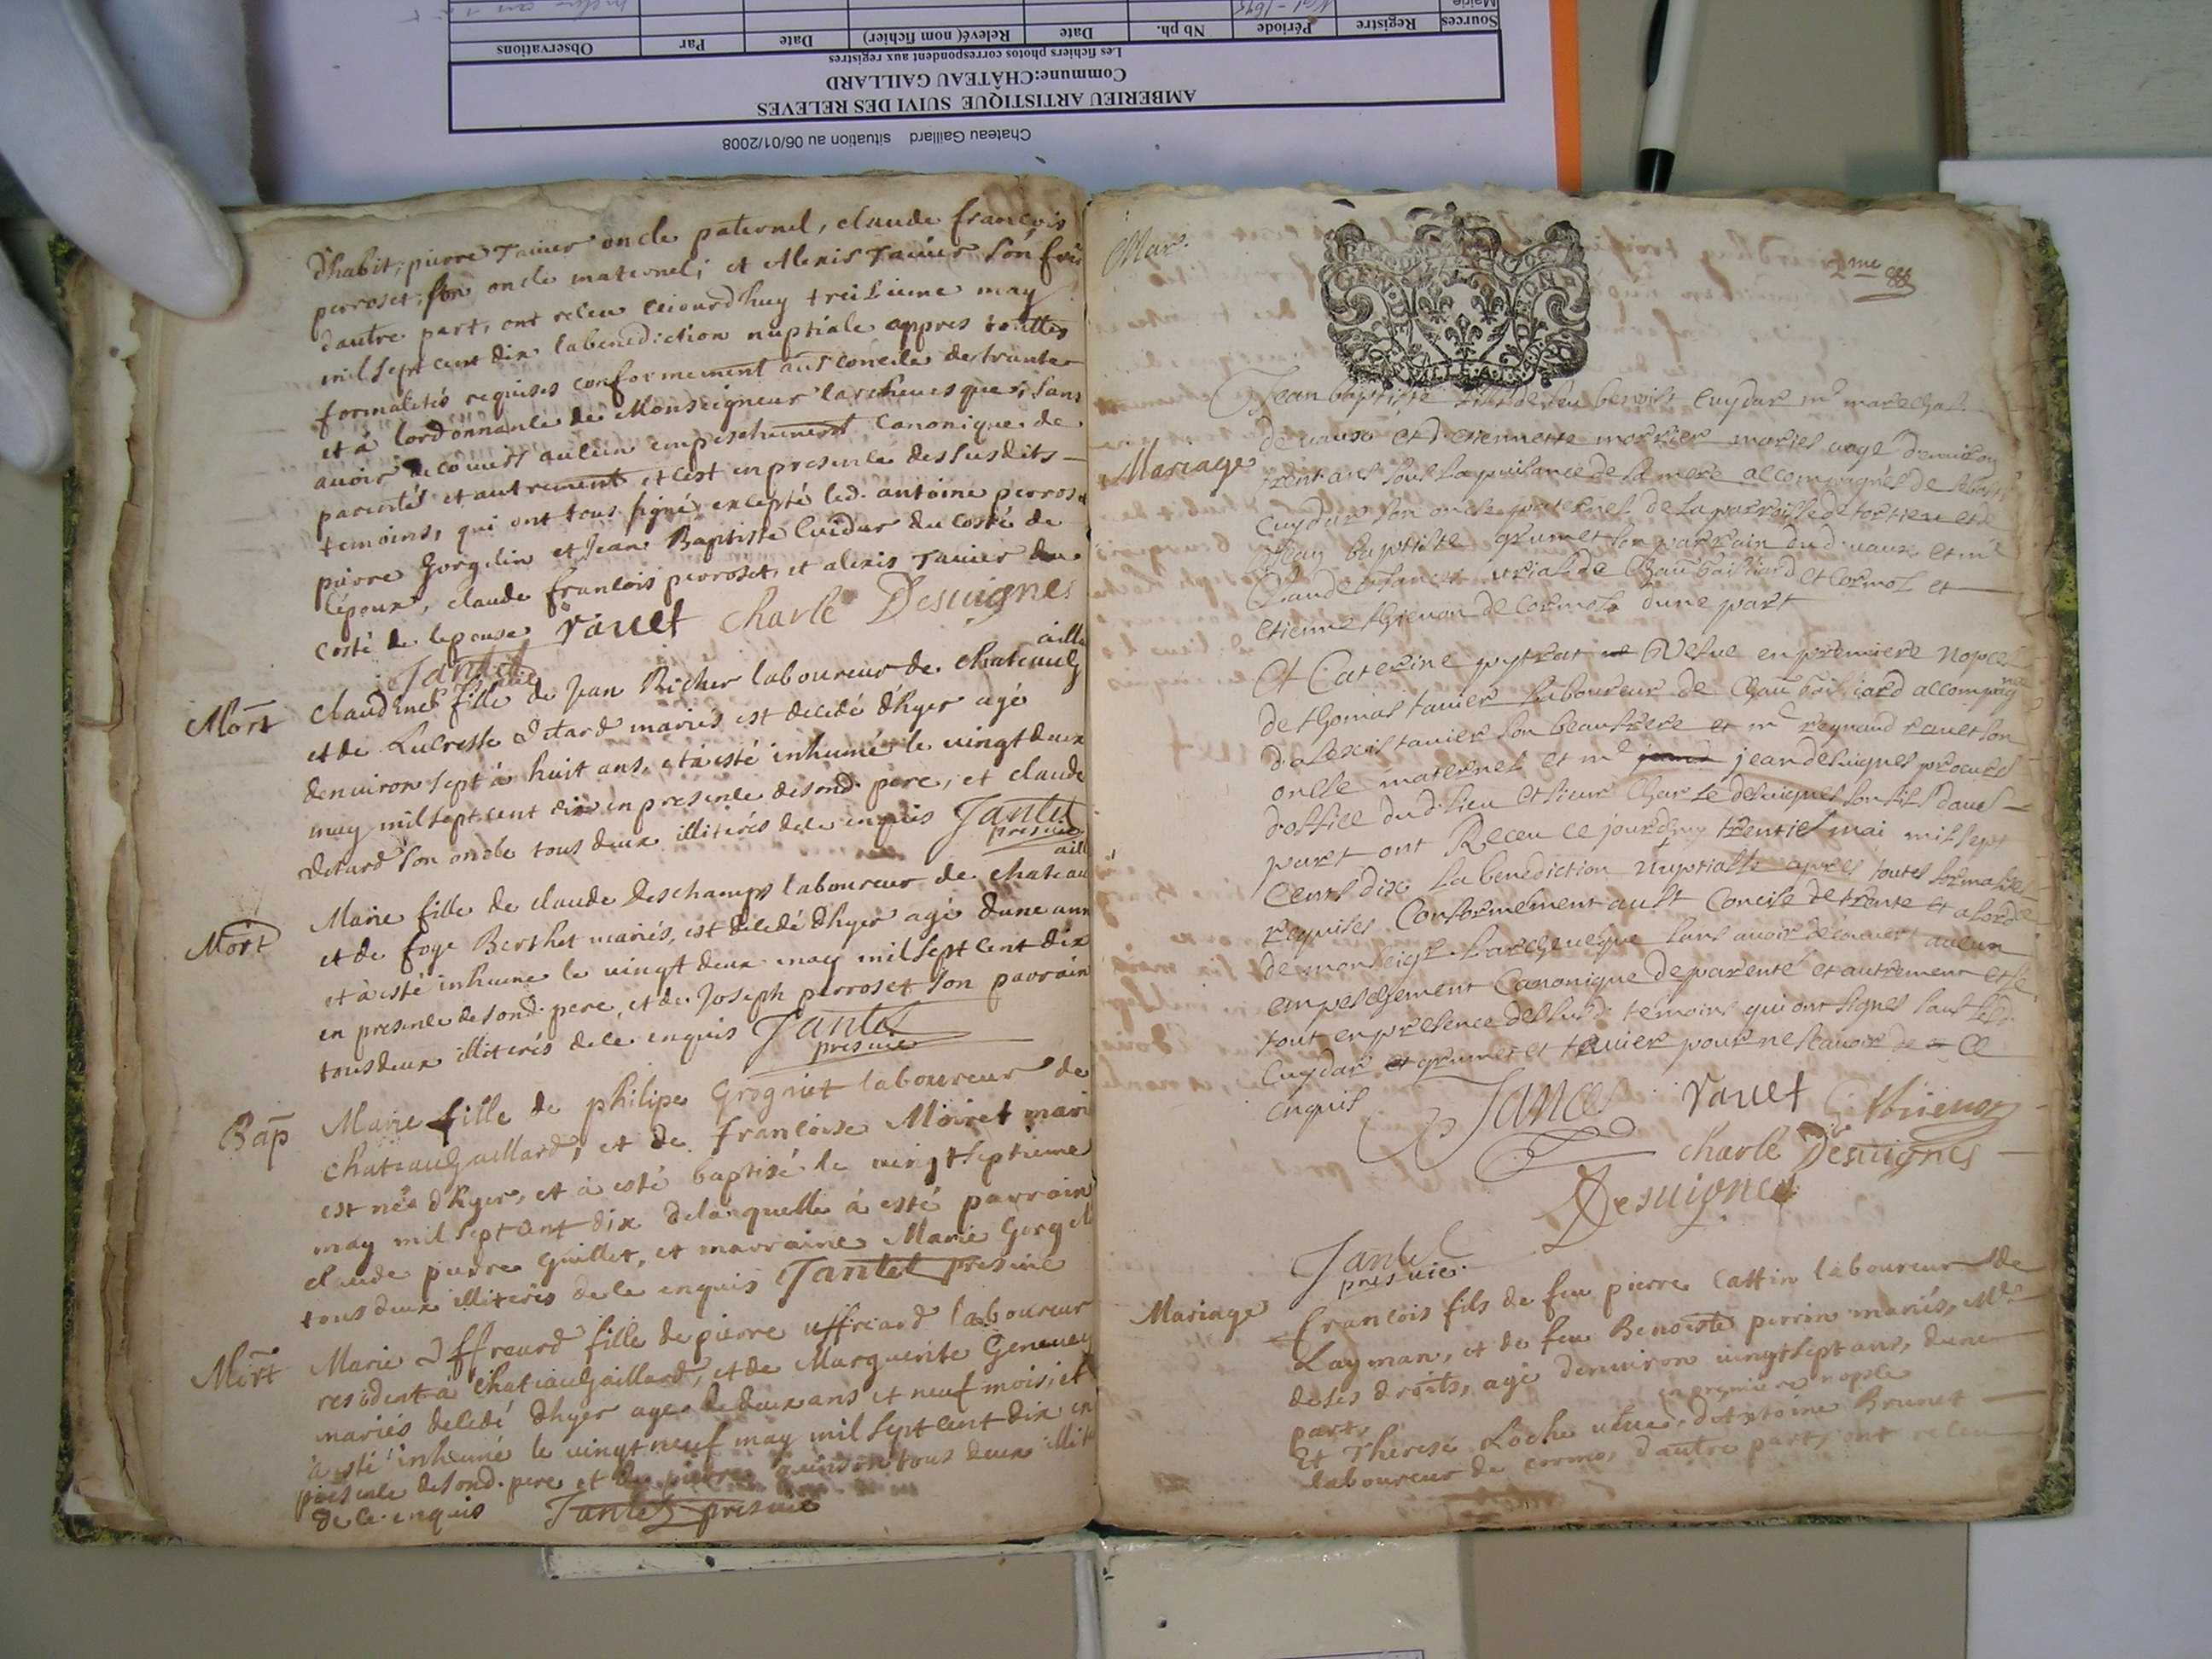 Chateau Gaillard situation au 06/01/2008
AMBERIEU ARTISTIQUE SUIVI DES RELEVES
Commune:CHÂTEAU GAILLARD
Les fichiers photos correspondent aux registres
Sources Registre Période Nb ph. Date Relevé( nom fichier) Date Par Observations
Mairie
d'habit, pierre Tavier oncle paternel, claude francois
perroset son oncle maternel, et Alexis Tavier son frere
dautre part, ont receu cejourdhuy treisieme may
mil sept cent dix la benediction nuptiale appres touttes
formalités requises conformement au s concile de trante
et à lordonnance de Monseigneur larcheuesque, sans
auoir decouuert aucun empeschement canonique de
parentés et autrement et cest en presence dessusdits
temoins, qui ont tous signé excepté led. antoine perroset
pierre Gorgelin et Jean Baptiste Cuidar du costé de
lépoux, claude francois perroset, et alexis Tavier du
costé de lepouse Vauet Charle Desuignes
Jantet
Mort
claudine fille de Jean Richer laboureur de chateaug
aille
et de Lucresse Detard mariés est decedé d'hyer agé
denuiron sept à huit ans, et à esté inhumé le uingt deux
may mil sept cent dix en presence de sond. pere, et claude
Detard son oncle tous deux illiterés de ce enquis Jantet
presuie
Mort
aill
Marie fille de claude Deschamps laboureur de chateau
et de foye Berthet mariés, est decedé d'hyer agé dune ann
et à esté inhumé le uingt deux may mil sept cent dix
en presence de sond. pere, et de Joseph perroset son parrain
tous deux illiterés de ce enquis Jantet
presuie
Bap
Marie fille de philipe Grogniet laboureur de
chateaugaillard, et de francoise Moiret mari
est née d'hyer, et à esté baptisé le uingt septieme
may mil sept cent dix de laquelle à esté parrain
claude pierre Guillet, et marraine Marie Gorgel
tous deux illiterés de ce enquis Jantet presuie
Mort
Marie Uffreard fille de pierre uffreard laboureur
resident à chateaugaillard, et de Marguerite Geneuey
mariés decedé d'hyer agé de deux ans et neuf mois, et
à esté inhumé le uingt neuf may mil sept cent dix en
presence de sond. pere et de pierre tous deux illit
de ce enquis Jantet presuie
Mar.
2me
Jean baptiste fils de feu benoist Cuydar mr marechal
de uaux et d etiennette morrier mariés aagé denuiron
trent ans sous la puissance de sa mere accompagnés de
Mariage
Cuydar son oncle paternel de la parroisse de tortieu et de
Jean baptiste grumet son parrain du d. uaux et mr
Claude francois uriale de Chau Gailliard et Cormoz et
etienne thieuon de Cormoz dune part
Et Caterine pytrat uefue en premiere nopces
de thomas tauier laboureur de Chau Gailliard accompag
d'alexis tauier son beaufrere et mr reynaud rauet son
oncle maternel et mr jean desuignes procurr
d'office dud. lieu et sieur Charle desuignes son fils dautre
part ont Receu ce jourdhuy trentiesme mai mil sept
Cents dix la benediction nuptialle apres toutes formalités
requises Conformement au st Concile de trente et a lordce
de monseigr. larcheueque sans auoir decouuert aucun
empeschement Canonique de parenté et autrement et le
tout en presence des susd. temoins qui ont signes sauf led.
Cuydar et grumet et tauier pour ne scauoir de ce
enquis
Jantet Vauet Ge thieuon
Charle Desuignes
Desuignes
Jantet
presuie.
Mariage
francois fils de feu pierre Cattin laboureur de
Layman, et de feu Benoiste perrin mariés, Mre
de ses droits, agé denuiron uingt sept ans, dune
part,
en premiere nopce
Et Therese Loche ueuue d'Antoine Brunet
laboureur de cormoz dautre part, ont receu